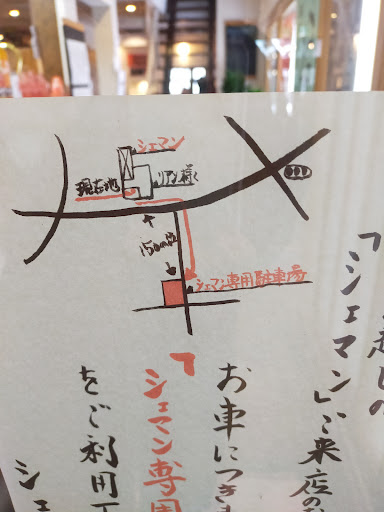 シェマン
現在地
150m位
シェマン専用駐車場
「シェマン」ご来店の
お車につきま
「シェマン専用
をご利用下
シェ